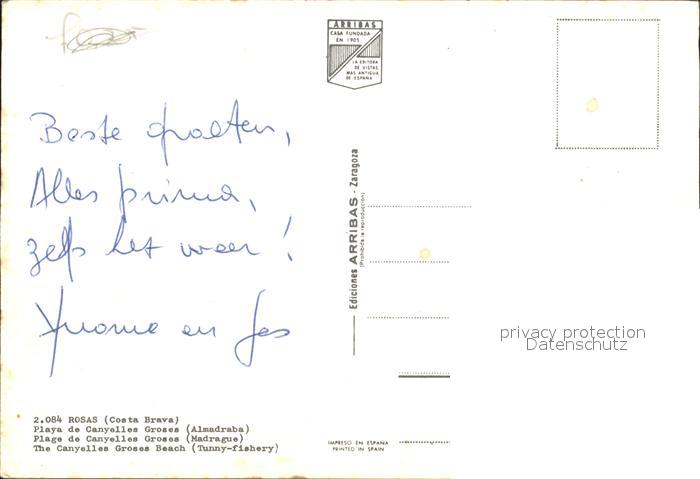 ARRIBAS
CASA FUNDADA
EN 1905
LA EDITORA
DE VISTAS
MAS ANTIGUA
DE ESPAÑA
Beste opaeten,
Alles prima,
zelfs het weer!
Yvonne en Jos
Ediciones ARRIBAS - Zaragoza
(Prohibida la reproducción)
privacy protection
Datenschutz
2.084 ROSAS (Costa Brava)
Playa de Canyelles Groses (Almadraba)
Plage de Canyelles Groses (Madrague)
The Canyelles Groses Beach (Tunny-fishery)
IMPRESO EN ESPAÑA
PRINTED IN SPAIN